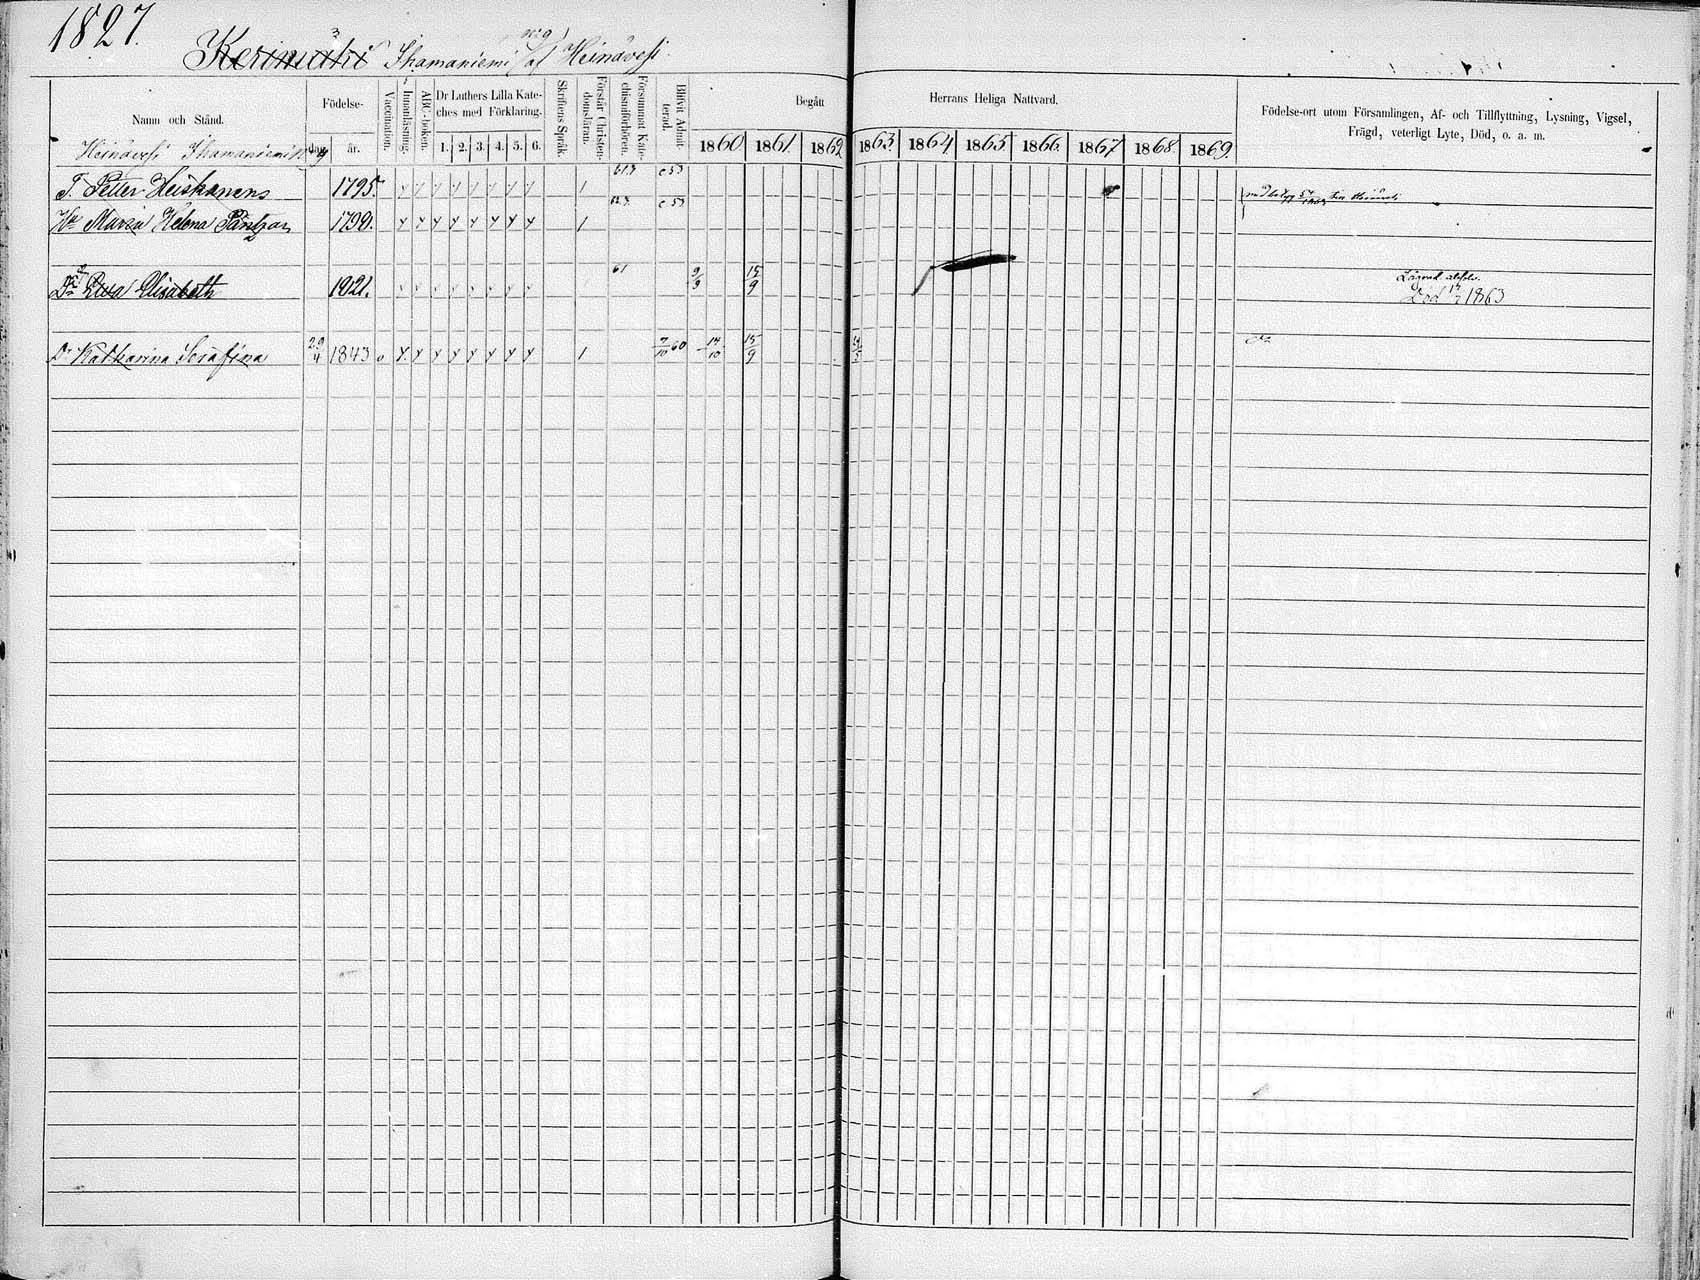 1827.
Kerimäki 3 Ihamaniemi af Heinävesi
Namn och Stånd.
Födelse-
dag
år.
Vaccination.
Innanläsning.
ABC-boken.
Dr Luthers Lilla Kate-
ches med Förklaring.
1. 2. 3. 4. 5. 6.
Skriftens Språk.
Förstår Christen-
domsläran.
Försummat Kate-
chismiförhören.
Blifvit Admit-
terad.
Begått Herrans Heliga Nattvard.
1860 1861 1862 1863 1864 1865 1866 1867 1868 1869.
Födelse-ort utom Församlingen, Af- och Tillflyttning, Lysning, Vigsel,
Frägd, veterligt Lyte, Död, o. a. m.
Heinävesi Ihamaniemi No 9
T. Petter Heiskanens 1795.
Maria Helena 1798.
Elisabeth 1821. 61 9/9 15/9
Död 1863
Dr Katharina Serafina 29/4 1843 7/10 60 14/10 15/9